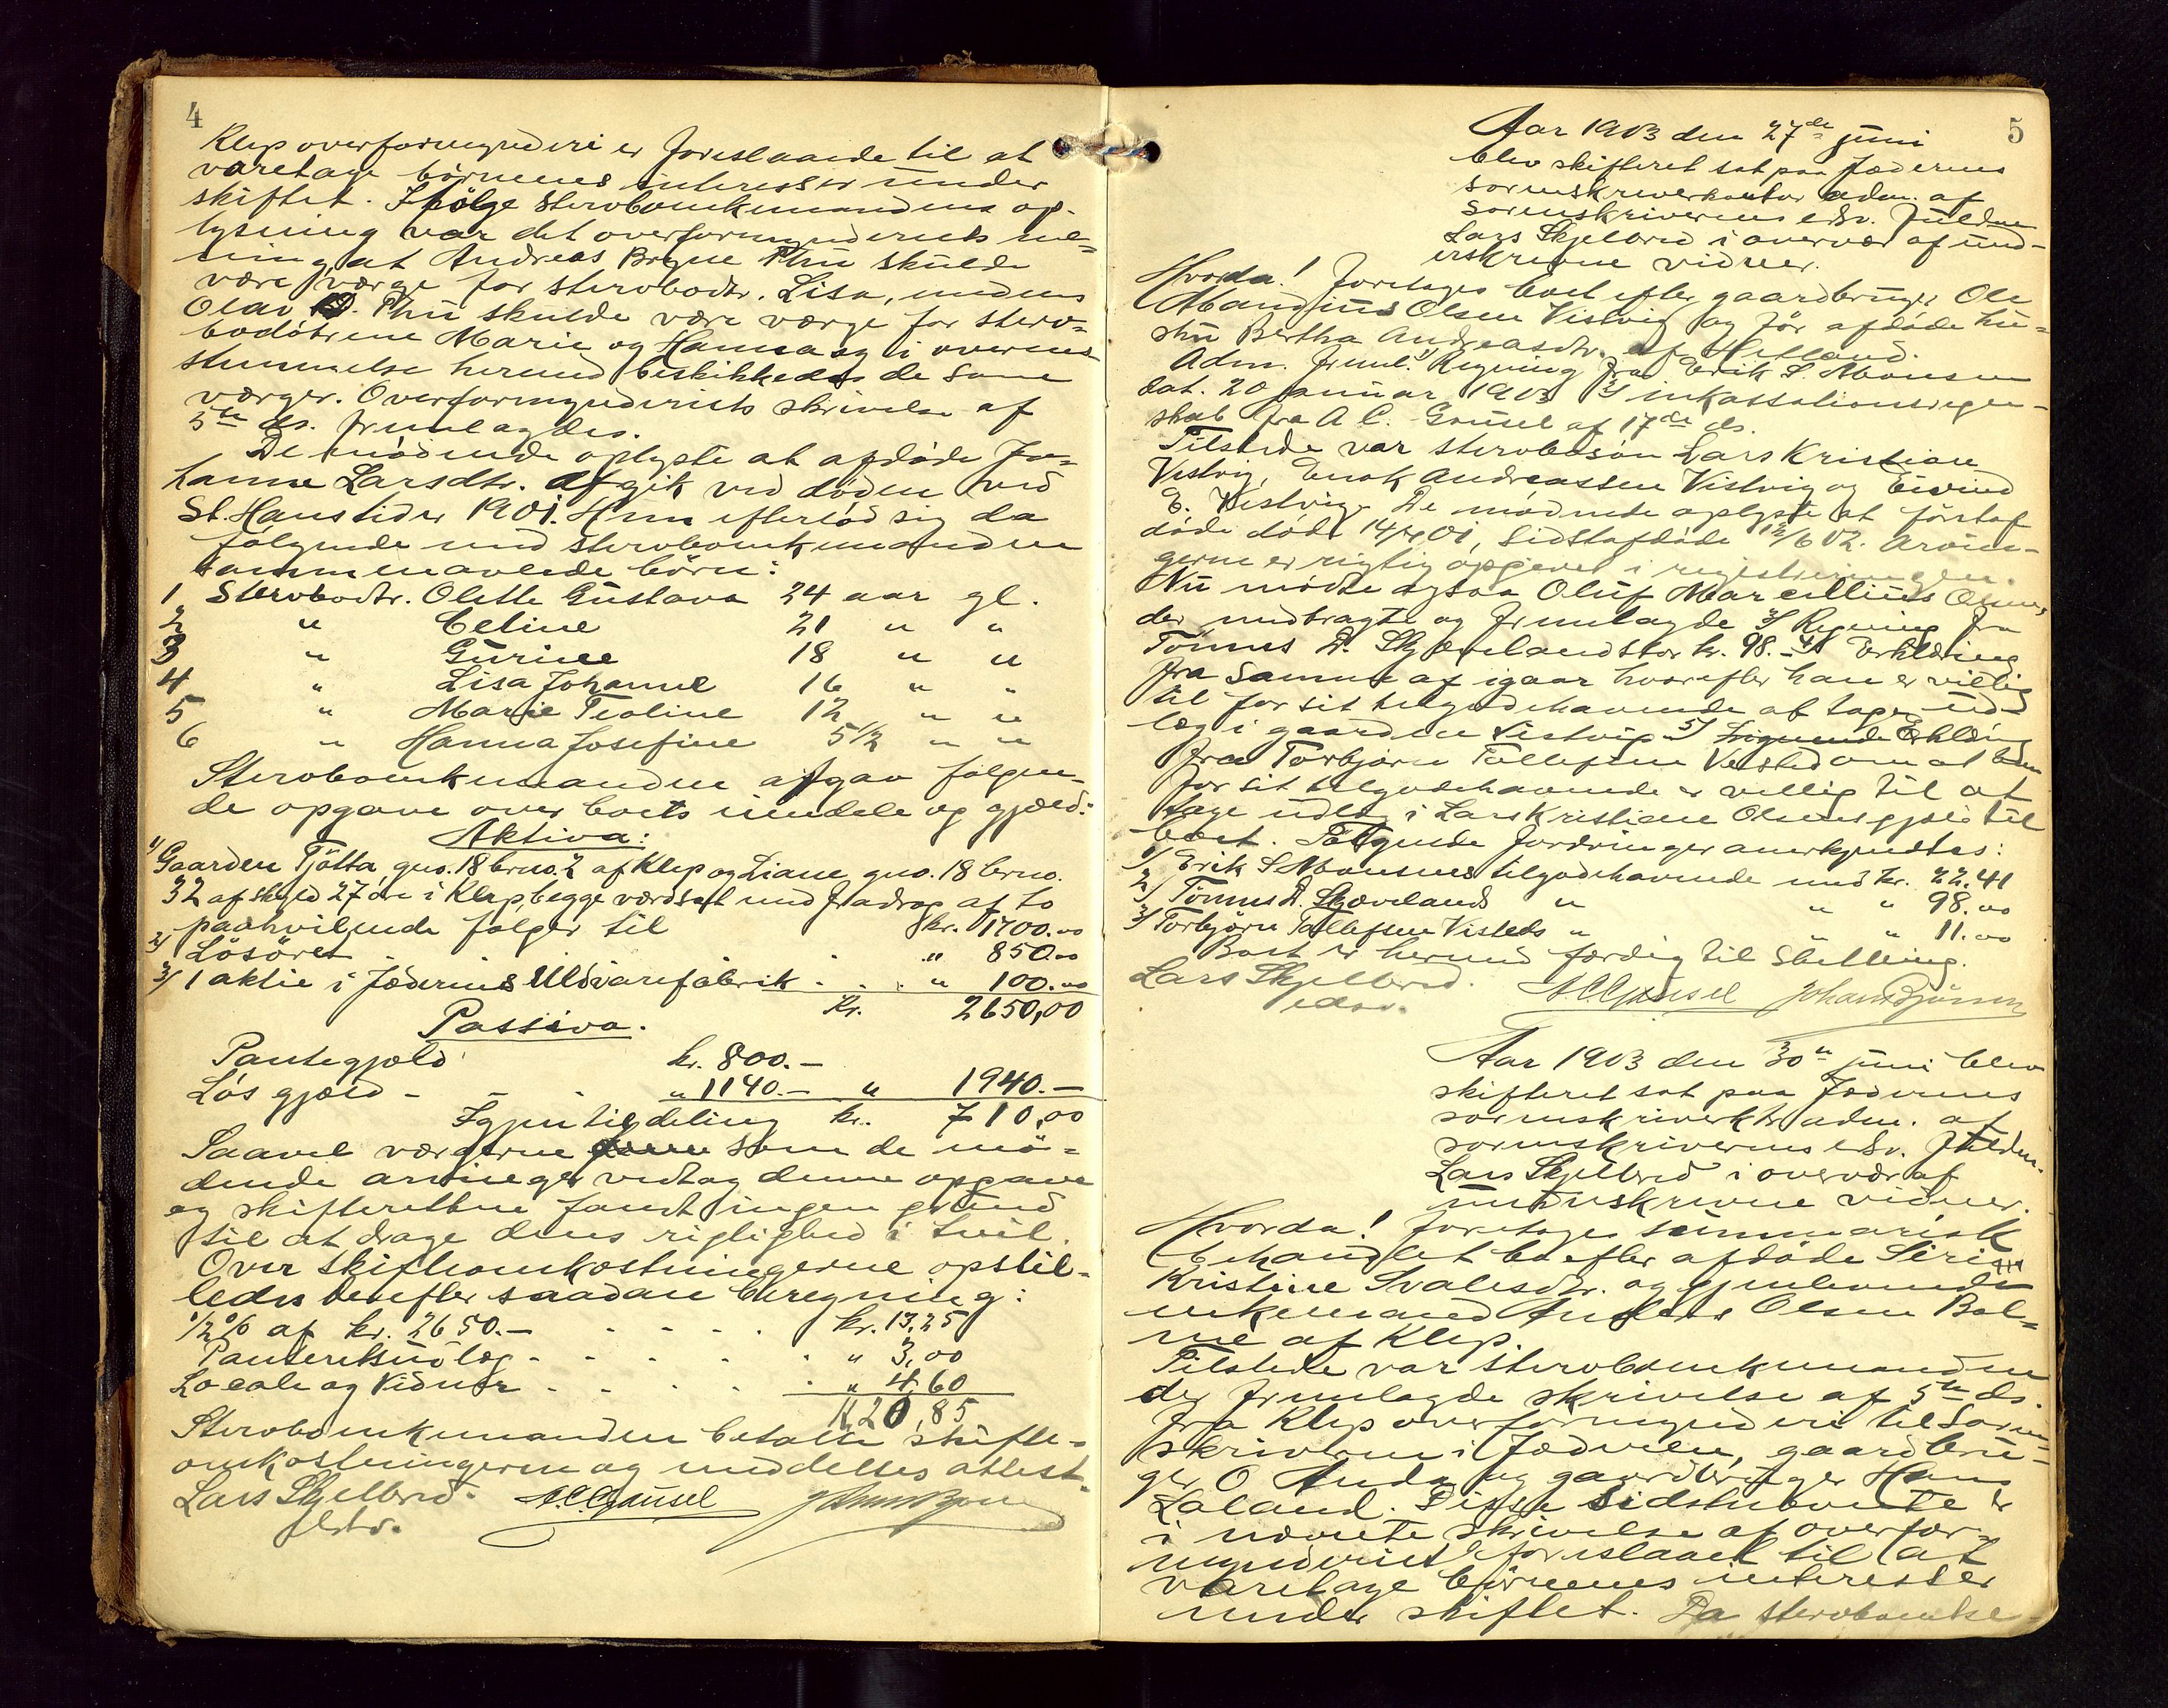 4
Klep overformynderi er foreslaaede til at
varetage børnenes interesser under
skiftet. Ifølge sterboenkemandens op-
lysning var det overformynderiets me-
ning at Andreas Bryne Thu skulde
være værge for sterbodtr. Lisa, medens
Olav D. Thu skulde være værge for sterv-
bodøtrene Marie og Hanna og i overens-
stemmelse hermed beskikkedes de som
værger. Overformynderiets skrivelse af
5te ds. fremlagdes.
De mødende oplyste at afdøde Jo-
hanne Larsdtr. afgik ved døden ved
St. Hanstider 1901. Hun efterlod sig da
følgende med stervboenkemanden
sammenavlede børn:
1 Stervbodtr. Olette Gustava 24 aar gl.
2 " Celine 21 " "
3 " Gurine 18 " "
4 " Lisa Johanne 16 " "
5 " Marie Teoline 12 " "
6 " Hanna Josefine 5 1/2 " "
Stervboenkemanden afgav følgen-
de opgave over boets eiendele og gjæld:
Aktiva:
1/ Gaarden Tjøtta, gno. 18 brno. 2 af Klep og Liane gno. 18 brno.
32 af skyld 27 øre i Klep, begge værdsat med fradrag af to
paahvilende følger til kr. 1700.00
2/ Løsøret - " 850.00
3/ 1 aktie i Jæderens Uldvarefabrik . . . " 100.00
Kr. 2650,00
Passiva.
Pantegjæld kr. 800.-
Løs gjæld - - - " 1140.- " 1940.-
Igjen til deling kr. 710,00
Saavel værgerne som de mø-
dende arvinger vedtog denne opgave
og skifteretten fandt ingen grund
til at drage dens rigtighed i tvil.
Over skifteomkostningerne opstil-
ledes derefter saadan beregning:
1/2 % af kr. 2650.- - - - . kr. 13,25
Panteretsudlæg - - - - . " 3,00
Locale og Vidner . - . - . " 4,60
Kr 20,85
Stervboenkemanden betalte skifte-
omkostningerne og meddeltes attest.
Lars Skjelbred. A C Gausel Johan Bjørn
edsv.
5
Aar 1903 den 27de juni
blev skifteret sat paa Jæderens
sorenskriverkontor adm. af
sorenskriverens edsv. fuldm.
Lars Skjelbred i overvær af und-
erskrevne vidner.
Hvorda! foretages boet efter gaardbruger Ole
Mandius Olsen Vistvig og før afdøde hu-
stru Bertha Andreasdtr. af Hetland.
Adm. freml. 1/ Regning fra Erik S. Monsen
dat. 20 januar 1903 2/ inkassationsregn-
skab fra A C. Gausel af 17de ds.
Tilstede var stervbosøn Lars Kristian
Vistvig, Enok Andreassen Vistvig og Eivind
E. Vistvig. De mødende oplyste at førstaf
døde døde 14/4 01, sidstafdøde 12/6 02. Arvin-
gerne er rigtig opgivet i registreringen.
Nu mødte ogsaa Oluf Marcellius Olsen,
der medbragte og fremlagde 3/ Regning fra
Tønnes A. Skjævelandstor kr. 98.- 4/ Erklæring
fra samme af igaar hvorefter han er villig
til for sit tilgodehavende at tage ud-
læg i gaarden Vistvig 5/ Lignende Erklæring
fra Torbjørn Tollefsen Visted om at han
for sit tilgodehavende er villig til at
tage udlæg i Lars Kristian Olsens gjæld til
boet. Følgende fordringer anerkjendtes:
1/ Erik S Monsens tilgodehavende med kr. 22.41
2/ Tønnes A. Skævelands " " " 98.00
3/ Torbjørn Tollefsen Visteds " " " 11.00
Boet er hermed færdig til slutning.
Lars Skjelbred. A C Gausel Johan Bjørn
edsv.
Aar 1903 den 30te juni blev
skifteret sat paa Jæderens
sorenskriverktr adm. af
sorenskriverens edsv. fuldm.
Lars Skjelbred i overvær af
underskrevne vidner.
Hvorda! foretages summarisk
behandlet bo efter afdøde Siri
Kristine Svalesdtr. og gjenlevende
enkemand Anders Olsen Bol-
me af Klep.
Tilstede var stervboenkemanden
der fremlagde skrivelse af 5te ds.
fra Klep overformynderi til soren-
skriveren i Jæderen, gaardbru-
ger O Anda og gaardbruger Hans
Laland. Disse sidstnævnte er
i nævnte skrivelse af overfor-
mynderiet foreslaaet til at
varetage børnenes interesser
under skiftet. Da stervboenke-